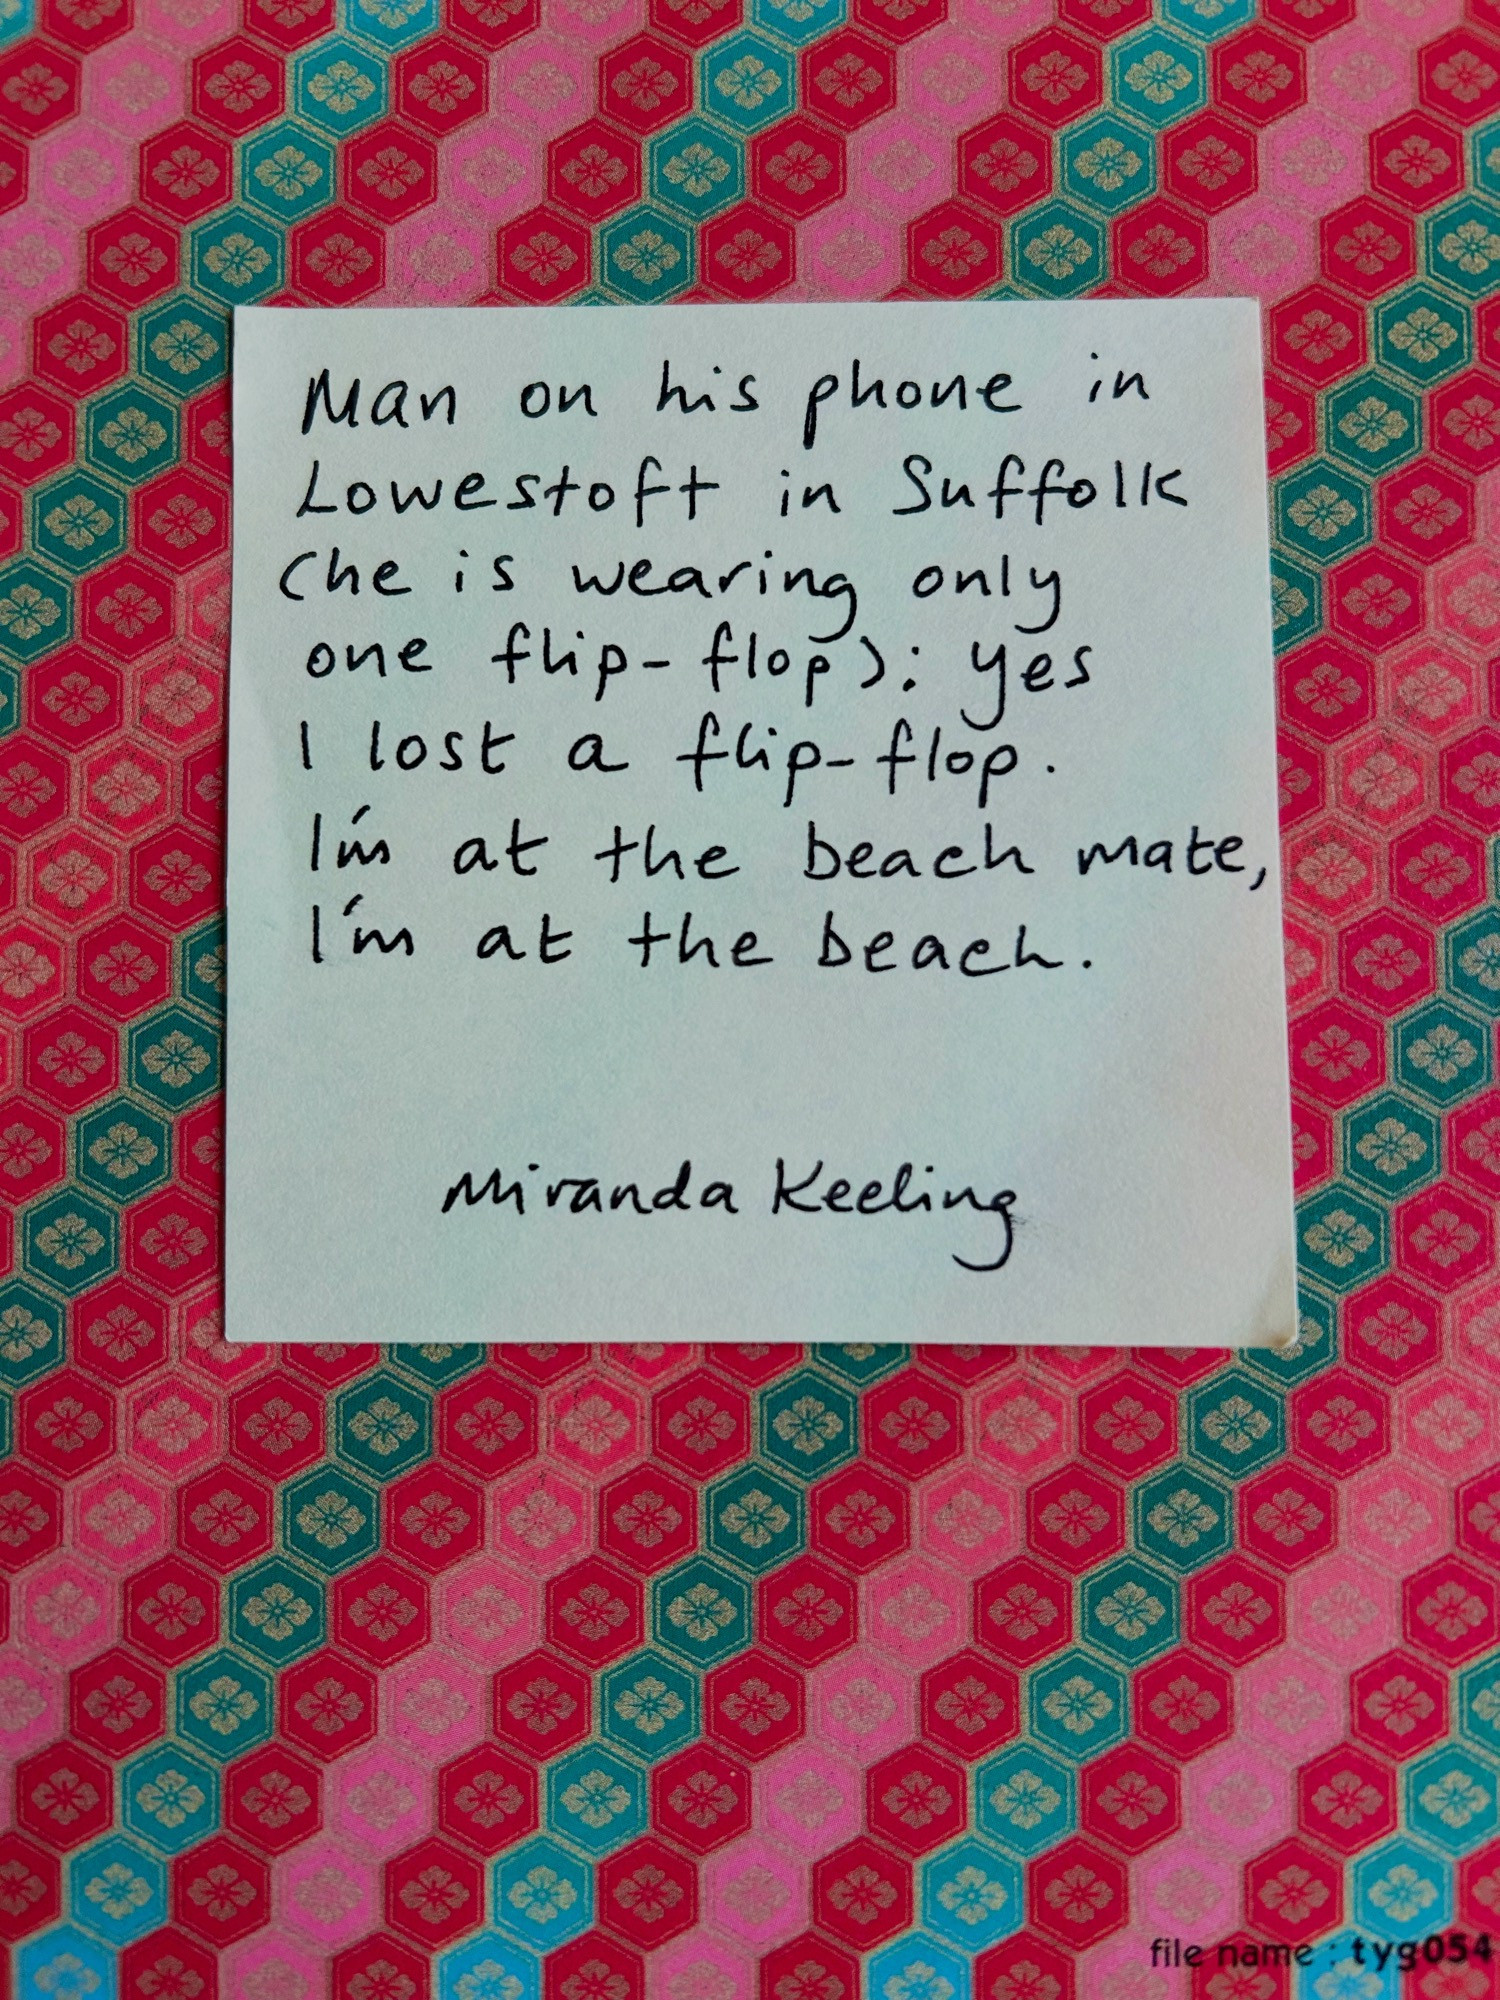 Man on his phone in
Lowestoft in Suffolk
(he is wearing only
one flip-flop): yes
I lost a flip-flop.
I'm at the beach mate,
I'm at the beach.
Miranda Keeling
file name : tyg054